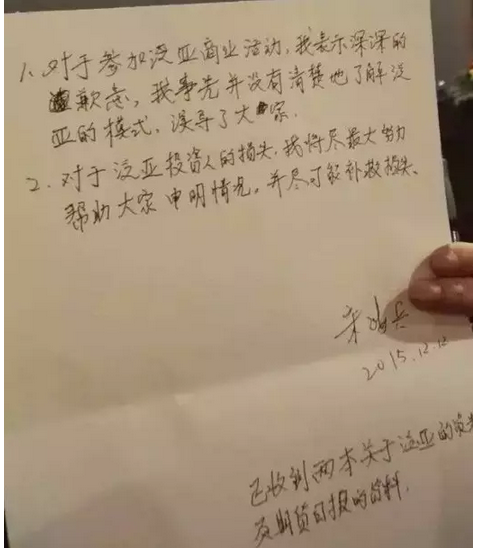 1、对于参加泛亚商业活动，我表示深深的
歉意，我事先并没有清楚地了解泛
亚的模式，误导了大家.
2、对于泛亚投资人的损失，我将尽最大努力
帮助大家申明情况，并尽可能补救损失、
宋鸿兵
2015.12.12
已收到两本关于泛亚的
及期货日报的资料.